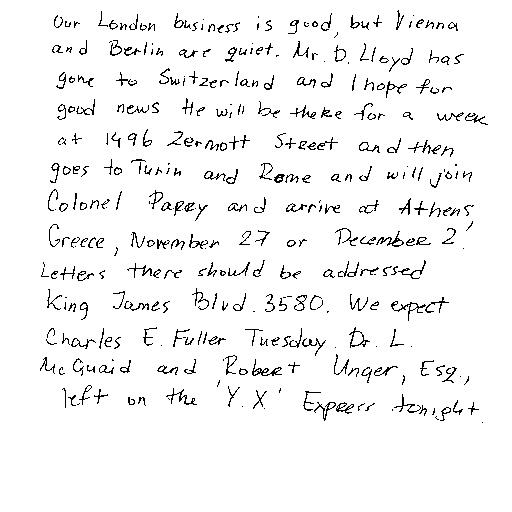 Our London business is good, but Vienna
and Berlin are quiet. Mr. D. Lloyd has
gone to Switzerland and I hope for
good news He will be there for a week
at 1496 Zermott Street and then
goes to Turin and Rome and will join
Colonel Parry and arrive at Athens,
Greece, November 27 or December 2.
Letters there should be addressed
King James Blvd. 3580. We expect
Charles E. Fuller Tuesday. Dr. L.
McQuaid and Robert Unger, Esq.,
left on the 'Y.X.' Express tonight.